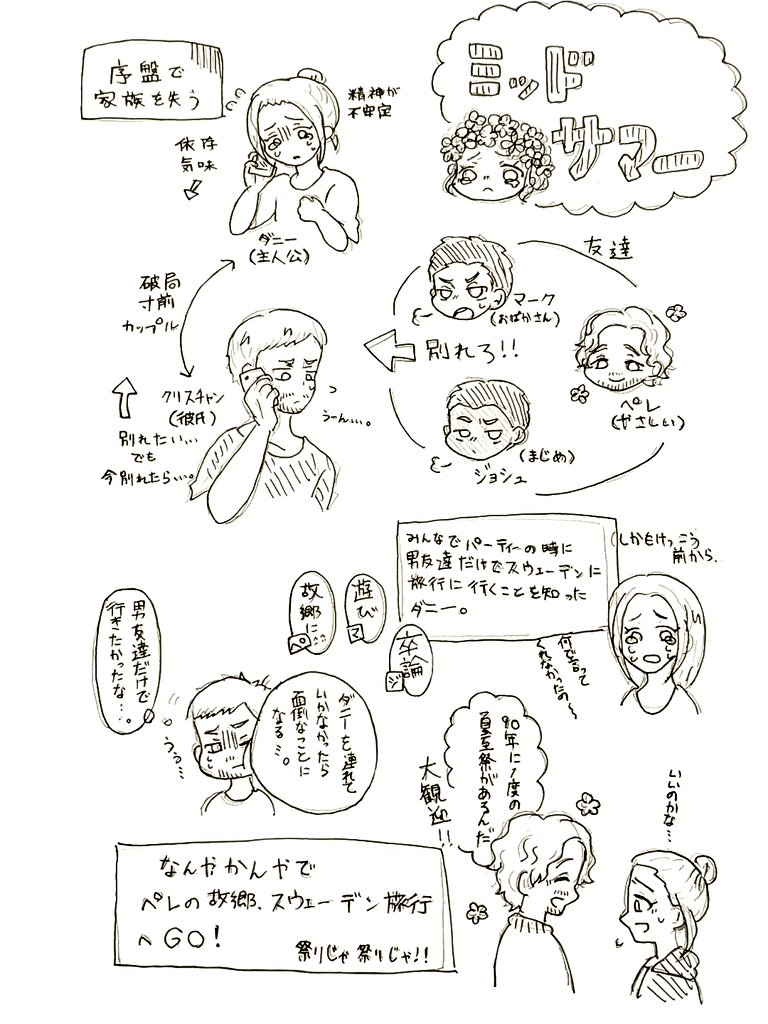 ミッド
サマー
序盤で
家族を失う
精神が
不安定
依存
気味
ダニー
(主人公)
破局
寸前
カップル
クリスチャン
(彼氏)
別れたい…
でも
今別れたら…。
うーん…。
友達
マーク
(おばかさん)
別れろ!!
ペレ
(やさしい)
(まじめ)
ジョシュ
みんなでパーティーの時に
男友達だけでスウェーデンに
旅行に行くことを知った
ダニー。
(しかもけっこう
前から、
何で言って
くれなかったの〜
遊び
マ
故郷に…
ペ
卒論
ジ
男友達だけで
行きたかったな…。
うぅ…
ダニーを連れて
いかなかったら
面倒なことに
なる…。
90年に1度の
夏至祭があるんだ
大観迎!!
いいのかな…
なんやかんやで
ペレの故郷、スウェーデン旅行
へGO!
祭りじゃ祭りじゃ!!